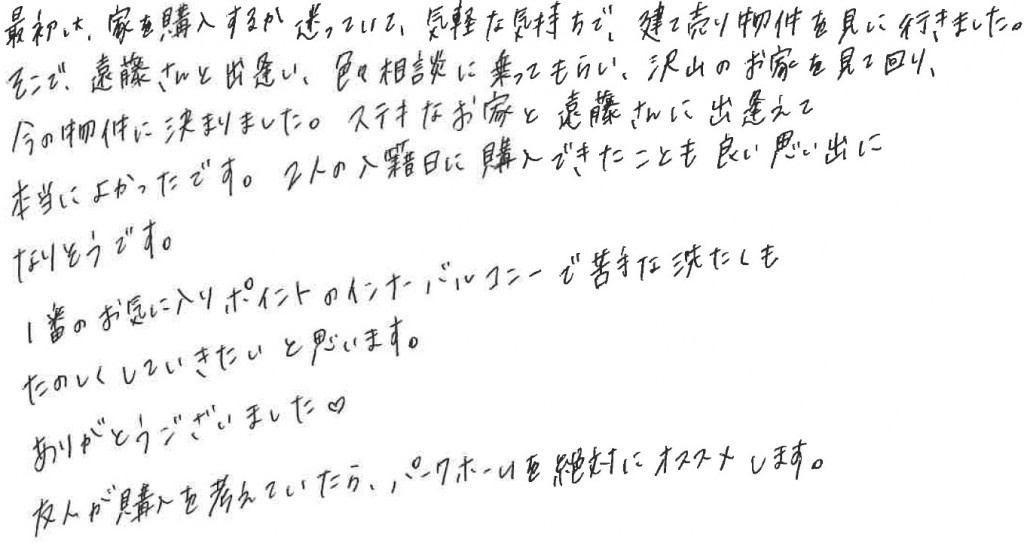 最初は、家を購入するか迷っていて、気軽な気持ちで、建て売り物件を見に行きました。
そこで、遠藤さんと出逢い、色々相談に乗ってもらい、沢山のお家を見て回り、
今の物件に決まりました。ステキなお家と遠藤さんに出逢えて
本当によかったです。2人の入籍日に購入できたことも良い思い出に
なりそうです。
1番のお気に入りポイントのインナーバルコニーで苦手な洗たくも
たのしくしていきたいと思います。
ありがとうございました♡
友人が購入を考えていたら、パークホームを絶対にオススメします。